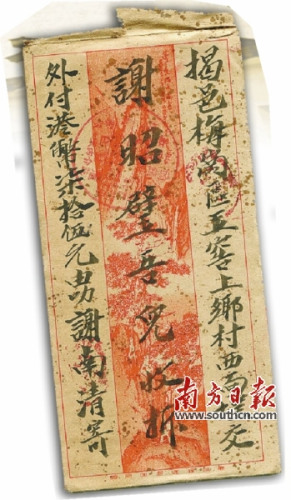 揭邑梅崗區五窖上鄉村西交
謝昭璧吾兒收拆
外付港幣柒拾伍元男謝南清寄
南方日报
www.southcn.com